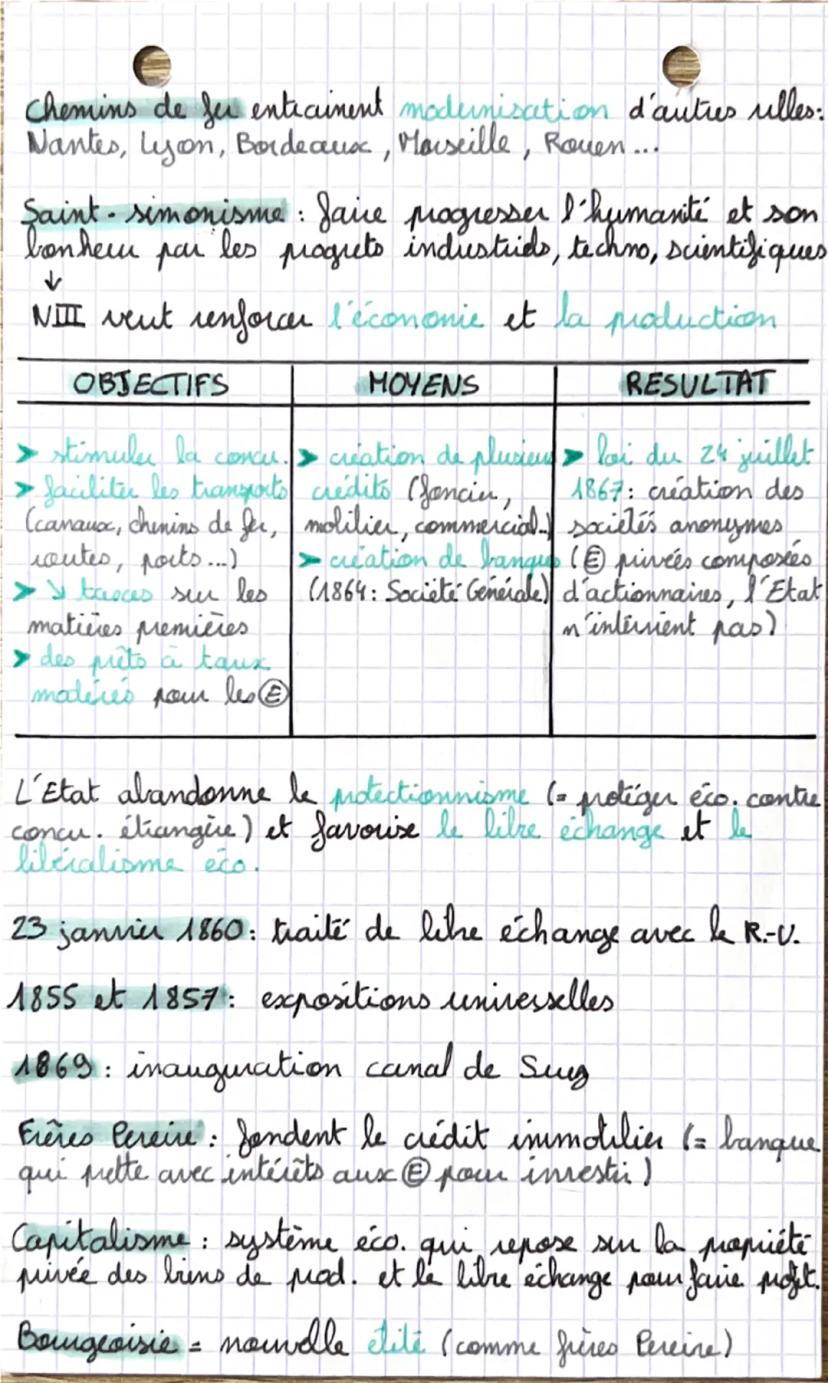 Chemins de fer entrainent modernisation d'autres villes:
Nantes, Lyon, Bordeaux, Marseille, Rouen ...
Saint-simonisme : faire progresser l'humanité et son
bonheur par les progrets industriels, techno, scientifiques
↓
NIII veut renforcer l'économie et la production
OBJECTIFS
➤ stimuler la concu.
➤ faciliter les transports
(canaux, chemins de fer,
routes, ports ...)
➤ ↘ taxes sur les
matières premières
➤ des prêts à taux
modérés pour les Ⓔ
MOYENS
➤ création de plusieurs
crédits (foncier,
mobilier, commercial..)
➤ création de banques
(1864: Société Générale)
RESULTAT
➤ loi du 24 juillet
1867: création des
sociétés anonymes
(Ⓔ privées composées
d'actionnaires, l'Etat
n'intervient pas)
L'Etat abandonne le protectionnisme (= protéger éco. contre
concu. étrangère) et favorise le libre échange et le
libéralisme éco.
23 janvier 1860: traité de libre échange avec le R.-U.
1855 et 1857: expositions universelles
1869: inauguration canal de Suez
Frères Pereire : fondent le crédit immobilier (= banque
qui prette avec intérêts aux Ⓔ pour investir)
Capitalisme : système éco. qui repose sur la propriété
privée des biens de prod. et le libre échange pour faire profit.
Bourgeoisie = nouvelle élite (comme frères Pereire)